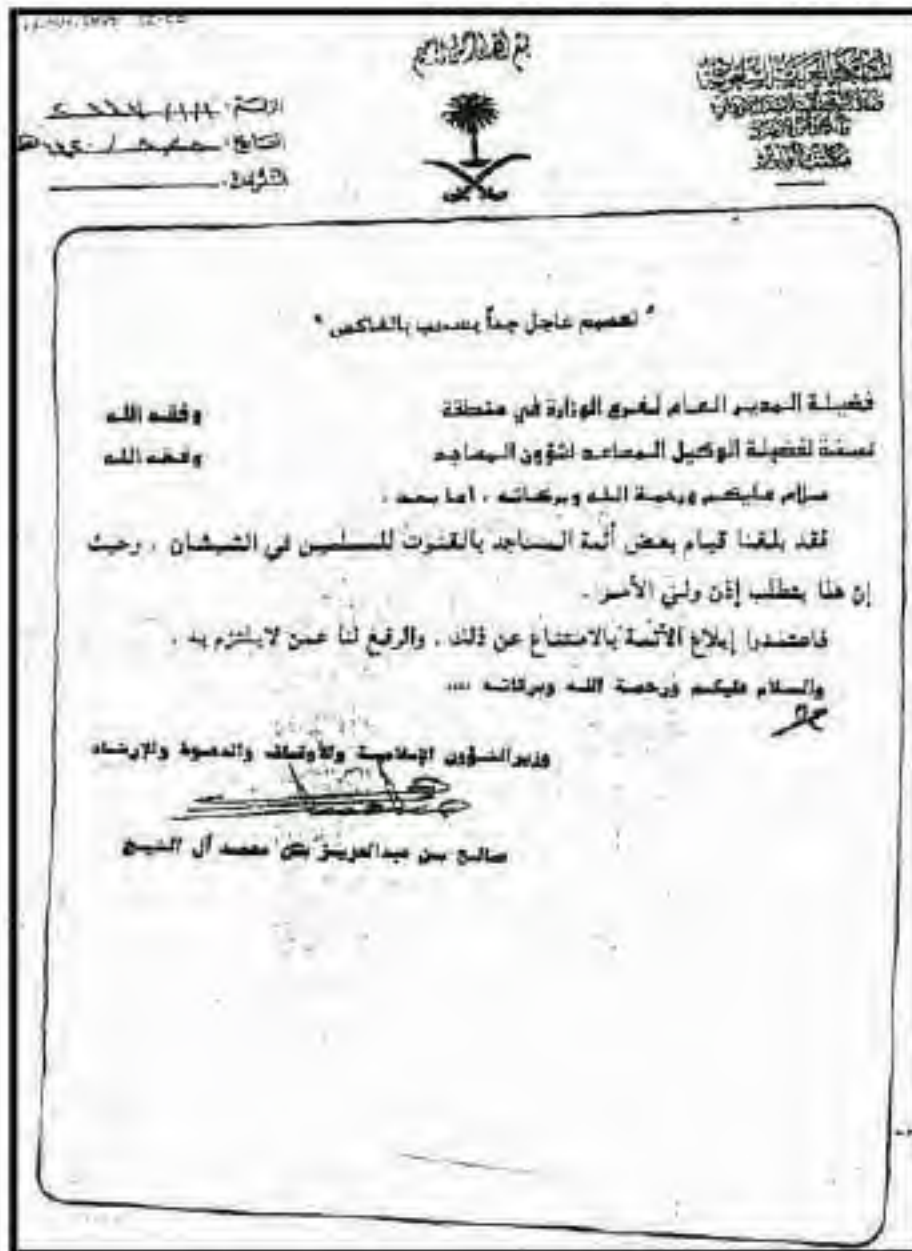 بسم الله الرحمن الرحيم
المملكة العربية السعودية
مكتب الوزير
الرقم:
التاريخ: / ١٤٢٠هـ
" تعميم عاجل جداً يسحب بالفاكس "
فضيلة المدير العام لفرع الوزارة في منطقة وفقه الله
نسخة لفضيلة الوكيل المساعد لشؤون المساجد وفقه الله
سلام عليكم ورحمة الله وبركاته ، أما بعد ،
فقد بلغنا قيام بعض أئمة المساجد بالقنوت للمسلمين في الشيشان ، وحيث
إن هذا يتطلب إذن ولي الأمر .
فاعتمدوا إبلاغ الأئمة بالامتناع عن ذلك ، والرفع لنا عمن لايلتزم به .
والسلام عليكم ورحمة الله وبركاته ....
وزير الشؤون الإسلامية والأوقاف والدعوة والإرشاد
صالح بن عبدالعزيز بن محمد آل الشيخ